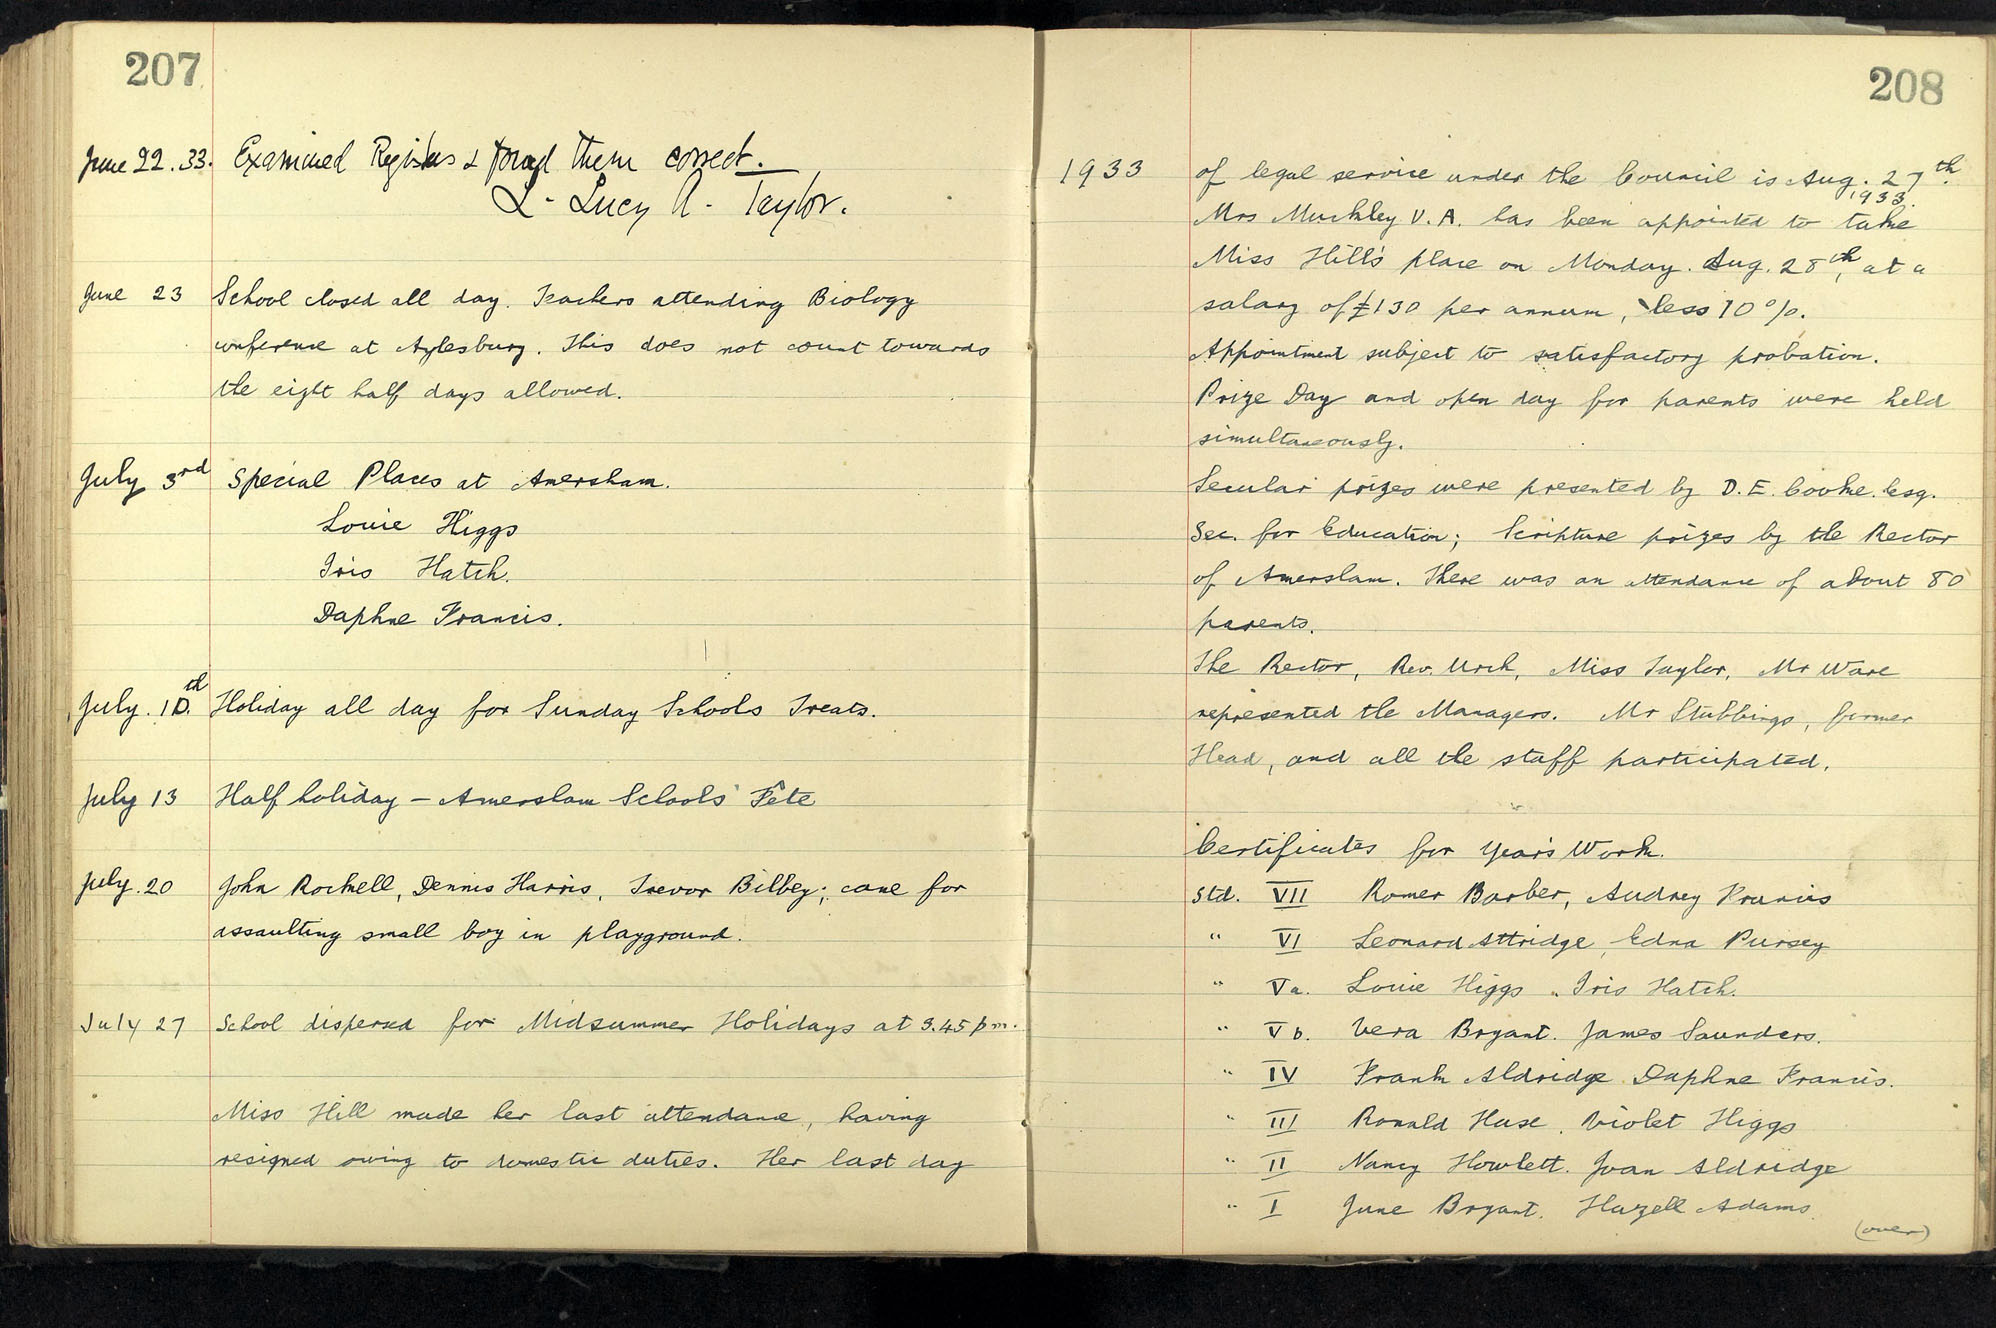 207
June 22. 33. Examined Registers & found them correct.
L. Lucy A. Taylor.
June 23 School closed all day. Teachers attending Biology
conference at Aylesbury. This does not count towards
the eight half days allowed.
July 3rd Special Places at Amersham.
Louie Higgs
Iris Hatch.
Daphne Francis.
July. 10.th Holiday all day for Sunday Schools Treats.
July 13 Half holiday – Amersham Schools' Fête
July. 20 John Rockell, Dennis Harris, Trevor Bilbey; cane for
assaulting small boy in playground.
July 27 School dispersed for Midsummer Holidays at 3.45 pm.
Miss Hill made her last attendance, having
resigned owing to domestic duties. Her last day
208
1933 of legal service under the Council is Aug. 27th
1933.
Mrs Muckley V.A. has been appointed to take
Miss Hill's place on Monday. Aug. 28th, at a
salary of £130 per annum, less 10%.
Appointment subject to satisfactory probation.
Prize Day and open day for parents were held
simultaneously.
Secular prizes were presented by D.E. Cooke. Esq.
Sec. for Education; Scripture prizes by the Rector
of Amersham. There was an attendance of about 80
parents.
The Rector, Rev. Urch, Miss Taylor, Mr Ware
represented the Managers. Mr Stubbings, former
Head, and all the staff participated.
Certificates for Year's Work.
Std. VII Romer Barber, Audrey Francis
" VI Leonard Attridge, Edna Pursey
" Va. Louie Higgs. Iris Hatch.
" Vb. Vera Bryant. James Saunders.
" IV Frank Aldridge Daphne Francis.
" III Ronald Hase. Violet Higgs
" II Nancy Howlett. Joan Aldridge
" I June Bryant. Hazell Adams.
(over)